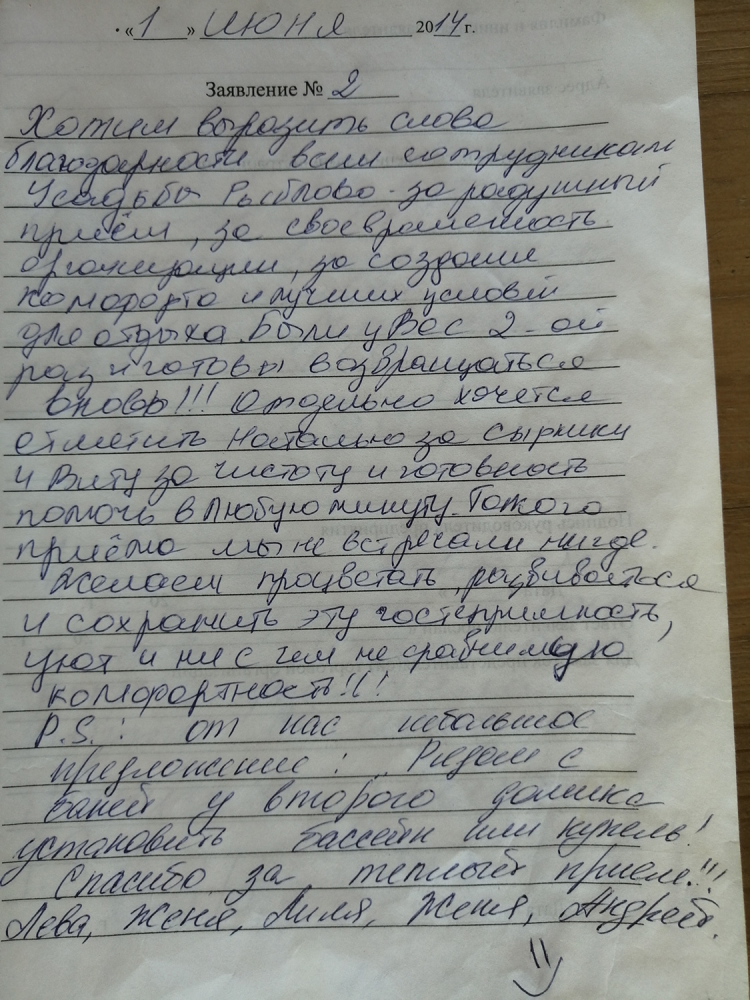 «1» июня 2014 г.
Заявление № 2
Хотим выразить слова
благодарности всем сотрудникам
Усадьбы Рыблово за радушный
приём, за своевременность
организации, за создание
комфорта и лучших условий
для отдыха. Были у Вас 2-ой
раз и готовы возвращаться
вновь!!! Отдельно хочется
отметить Наталью за сырники
и Виту за чистоту и готовность
помочь в любую минуту. Такого
приёма мы не встречали нигде.
Желаем процветать, развиваться
и сохранить эту гостеприимность,
уют и ни с чем не сравнимую
комфортность!!!
P.S.: от нас небольшое
предложение: Рядом с
баней у второго домика
установить бассейн или купель!
Спасибо за теплый прием!!!
Лева, Женя, Лиля, Женя, Андрей.